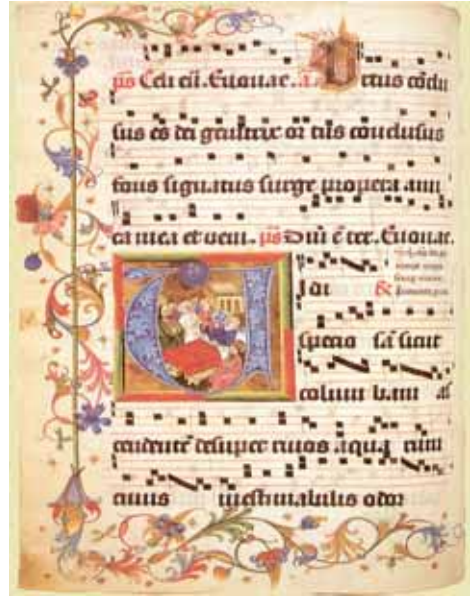 p̄s Celi eñ. Euouae. a. Ortus cōclu
sus es dei genitrix or tus conclusus
fons signatus surge propera ami
ca mea et veni. p̄s Dñi ē ter. Euouae.
Uidi
speciosā sicut
columbam as
cendentē desuper riuos aqua rum
cuius inestimabilis odor